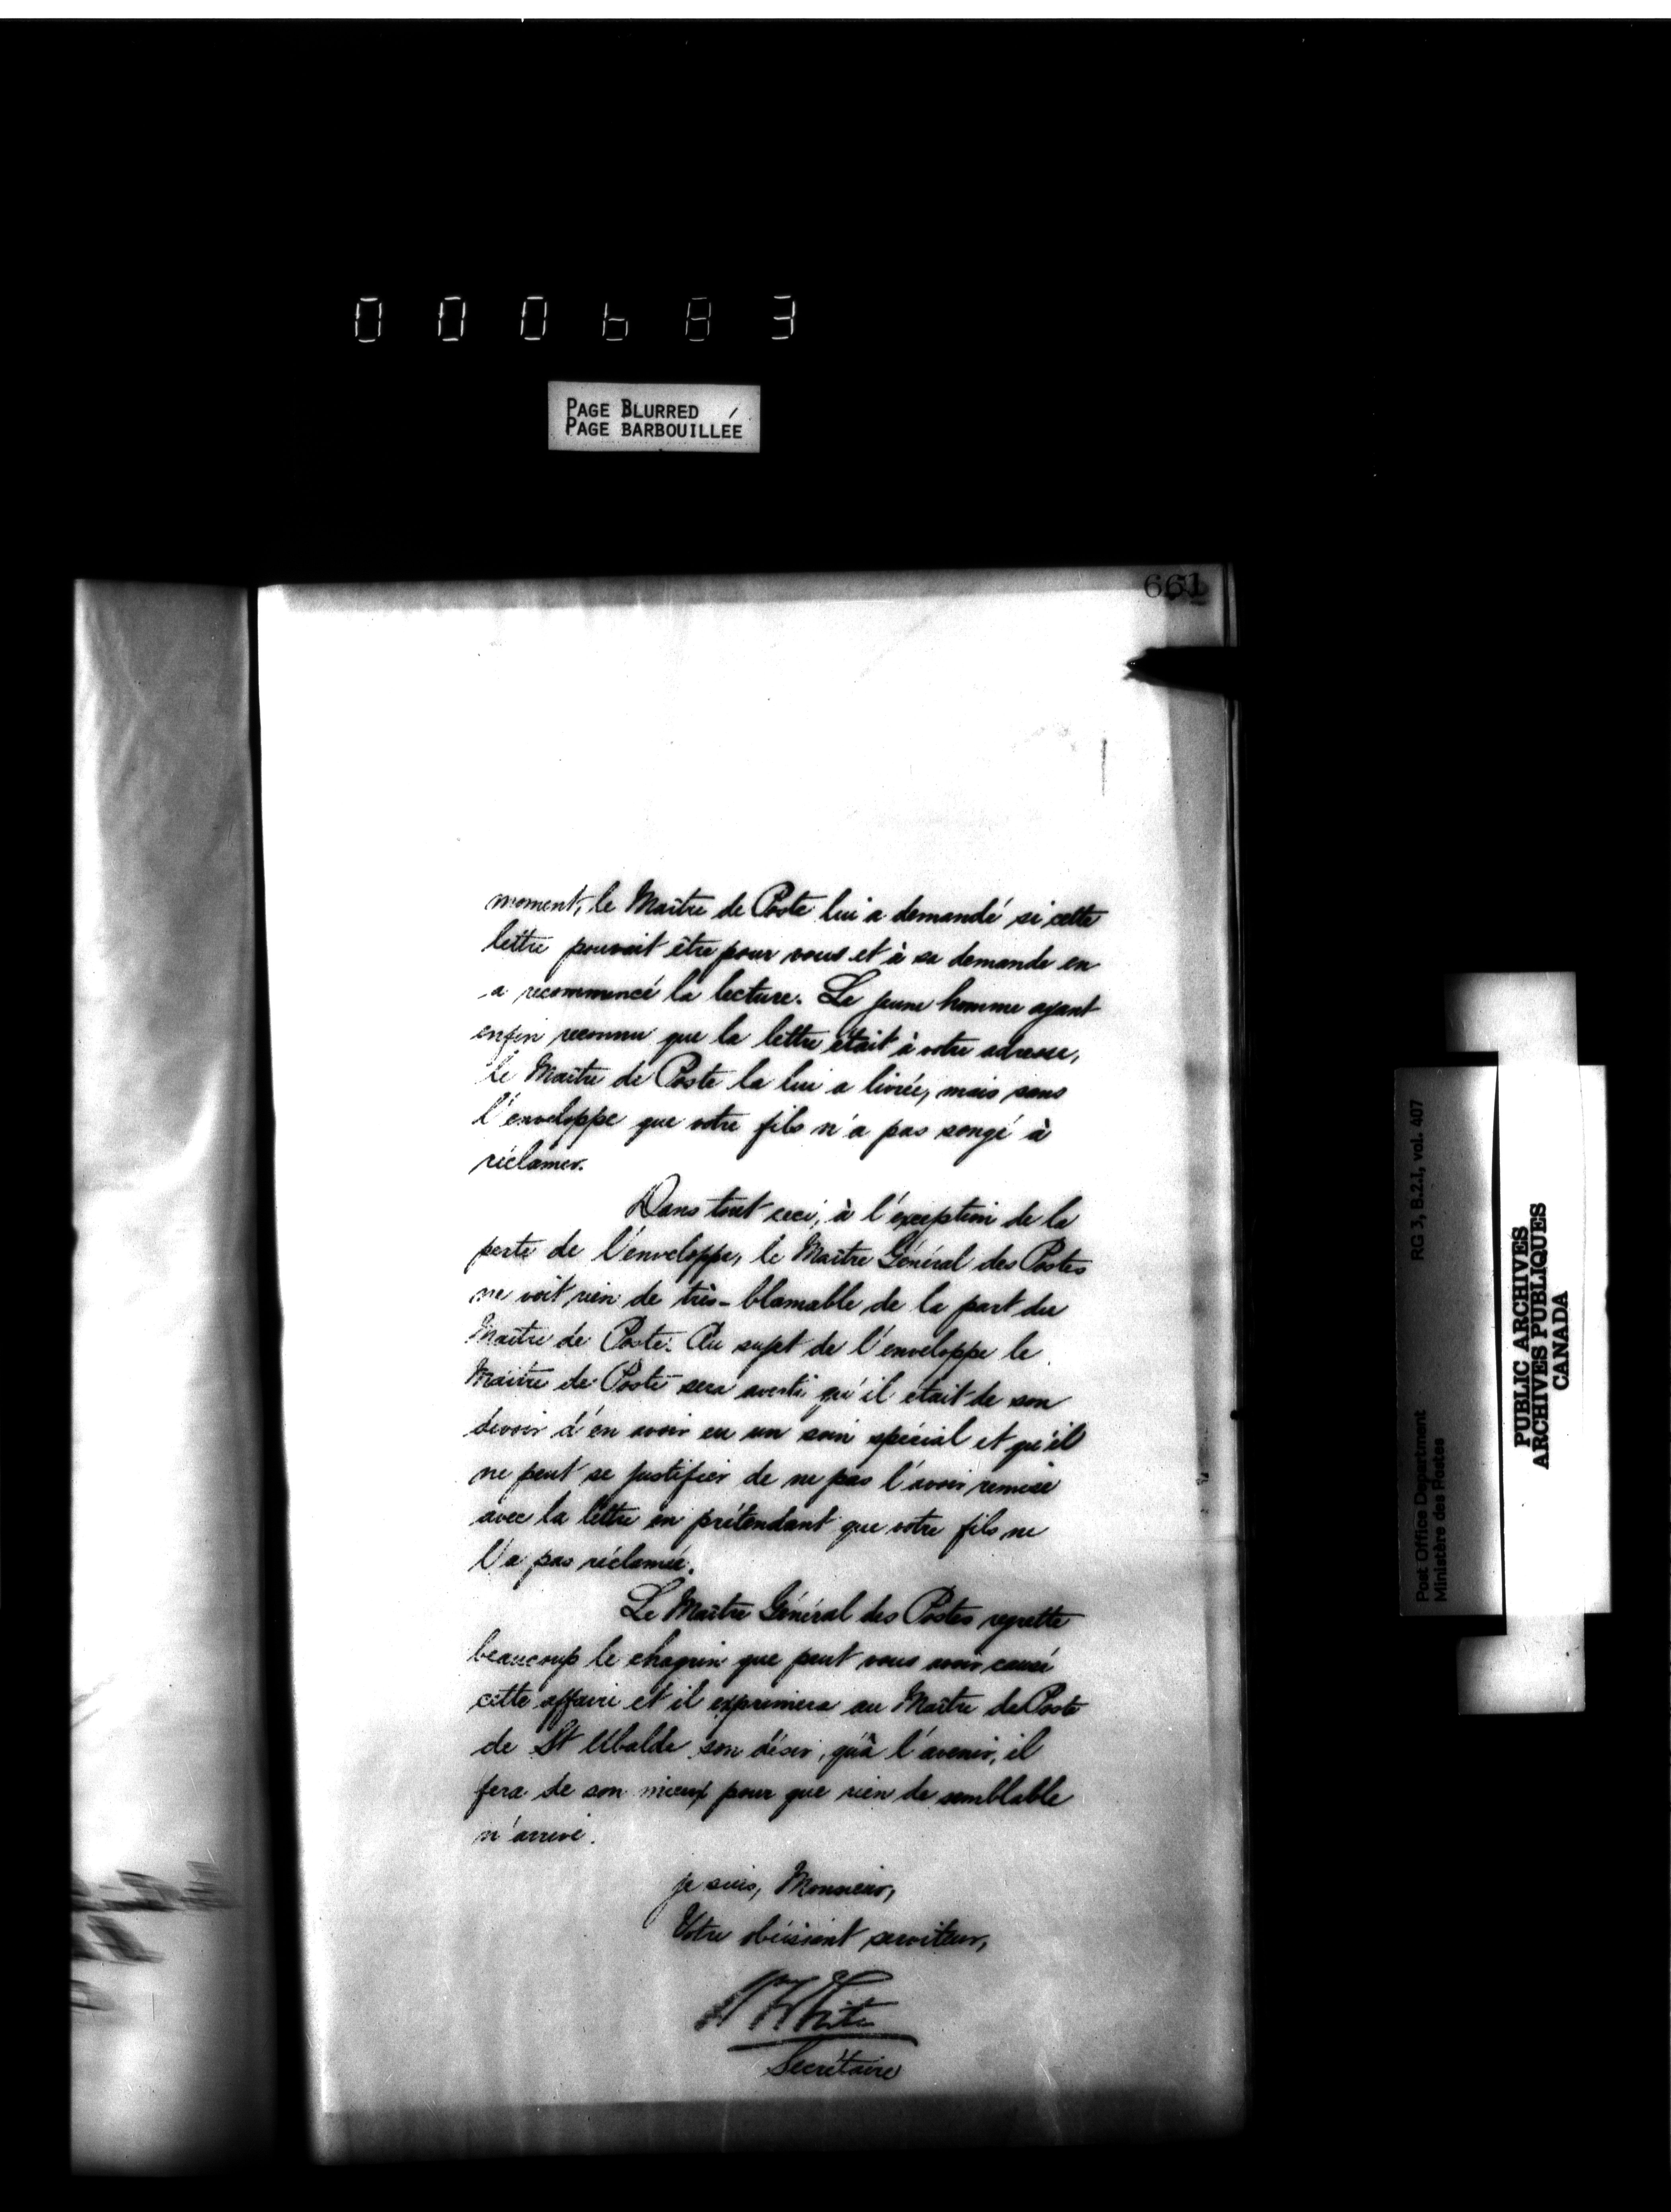 000683
PAGE BLURRED
PAGE BARBOUILLÉE
661
moment, le Maître de Poste lui a demandé si cette
lettre pouvait être pour vous et à sa demande en
a recommencé la lecture. Le jeune homme ayant
enfin reconnu que la lettre était à votre adresse,
le Maître de Poste la lui a livrée, mais sans
l'enveloppe que votre fils n'a pas songé à
réclamer.
Dans tout ceci, à l'exception de la
perte de l'enveloppe, le Maître Général des Postes
ne voit rien de très-blamable de la part du
Maître de Poste. Au sujet de l'enveloppe le
Maître de Poste sera averti qu'il etait de son
devoir d'en avoir eu un soin spécial et qu'il
ne peut se justifier de ne pas l'avoir remise
avec la lettre en prétendant que votre fils ne
l'a pas réclamée.
Le Maître Général des Postes regrette
beaucoup le chagrin que peut vous avoir causé
cette affaire et il exprimera au Maître de Poste
de St Ubalde son désir, qu'à l'avenir, il
fera de son mieux pour que rien de semblable
n'arrive.
je suis, Monsieur,
Votre obéissant serviteur,
White
Secrétaire
Post Office Department
Ministère des Postes
RG 3, B.2.1, vol. 407
PUBLIC ARCHIVES
ARCHIVES PUBLIQUES
CANADA